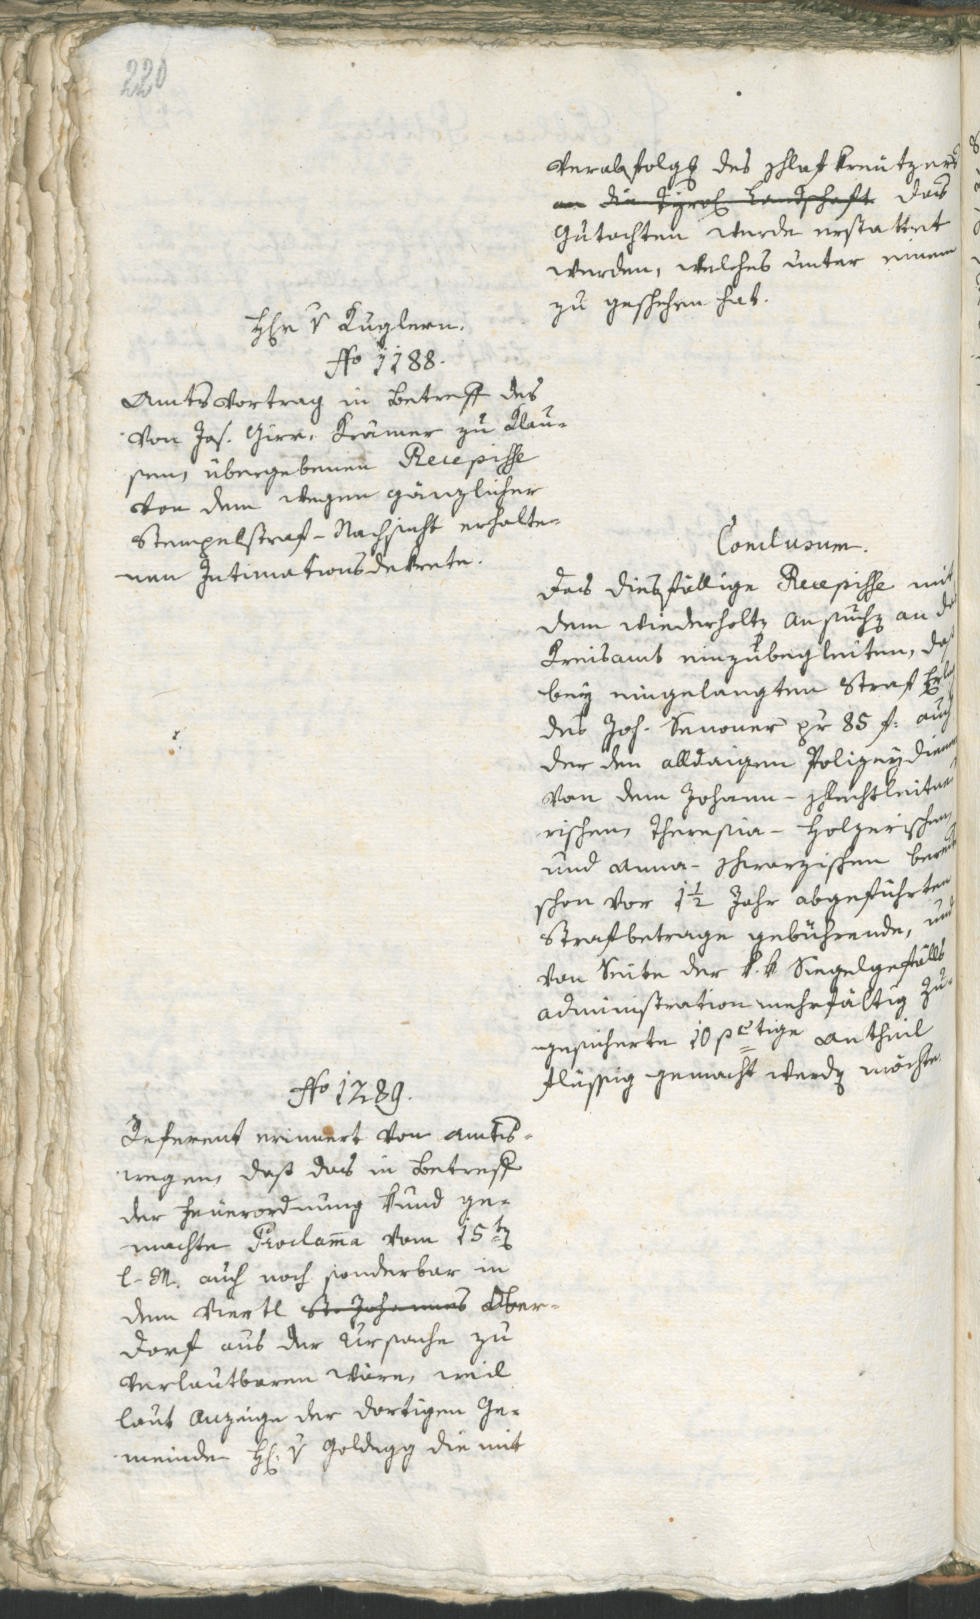 220
Verabfolgg des schlaf Kreützers
an die Tyrol. Landschaft das
Gutachten wurde erstattet
werden, welches unter einem
zu geschehen hat.
Hr v Kuglern.
No 1188.
Amtsvortrag in Betreff des
von Jos. Girr, Krämer zu Klau-
sen, übergebenen Recepisse
von dem wegen gänzlicher
Stempelstraf-Nachsicht erhalte-
nen Intimationsdekrete.
Conclusum.
Das diesfällige Recepisse mit
dem wiederholtn Ansuchn an
Kreisamt einzubegleiten, daß
bey eingelangten Straf
des Joh. Senoner pr 85 f. auch
der den alldaigen Polizeydienern
von dem Johann- schlechtleitne
rischen, Theresia- Holzerischen,
und Anna- schwarzischen bereits
schon vor 1½ Jahr abgeführten
Strafbetrage gebührende, und
von Seite der k.k Siegelgefälls
administration mehrfältig zu-
gesicherte 10 pctige Antheil
flüssig gemacht werdn möchte.
No 1289.
Referent erinnert von Amts-
wegen, daß das in Betreff
der Feuerordnung kund ge-
machte Proclama vom 15tn
l. M. auch noch sonderbar in
dem Viertl St. Johannes Ober-
dorf aus der Ursache zu
verlautbaren wäre, weil
laut Anzeige der dortigen Ge-
meinde H. v Goldegg die mit